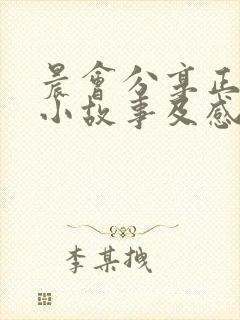 晨會分享正
小故事及感
李某拽